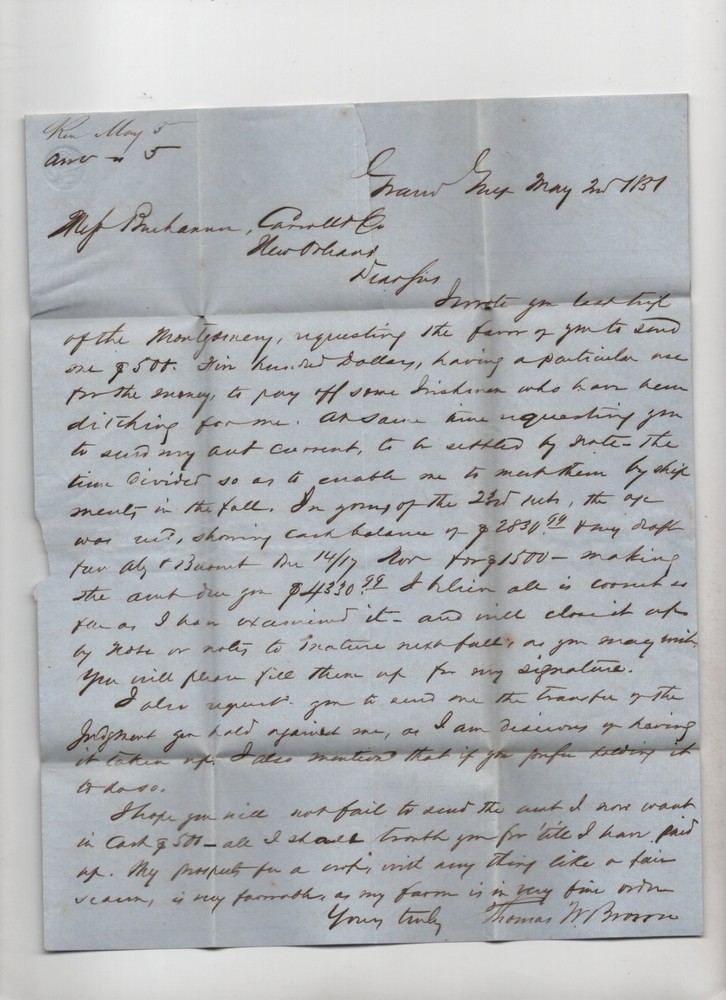 Rec May 5
ansd " 5
May 2nd
Messrs Buchannan, Carroll & Co
New Orleans
Dear Sirs
I wrote you last trip
of the Montgomery, requesting the favor of you to send
me $500. Five hundred Dollars, having a particular use
for the money, to pay off some Irishmen who have been
ditching for me. At same time requesting you
to send my acct current, to be settled by note - the
time divided so as to enable me to meet them by ship
ments in the fall. In yours of the 23rd the a/c
was recd, showing cash balance of $2830.99 & my draft
fav due 14/17 Nov for $1500 - making
the amt due you $4330.99 I believe all is correct as
far as I have examined it - and will close it up
by note or notes to mature next fall, as you may wish
You will please fill them up for my signature.
I also request you to send me the transfer of the
Judgment you hold against me, as I am desirous of having
it taken up. I also mention that if you prefer holding it
to do so.
I hope you will not fail to send the amt I now want
in Cash $500 - all I shall trouble you for 'till I have paid
up. My prospects for a crop, with any thing like a fair
season, is very favorable, as my farm is in very fine order
Yours truly Thomas W. Brown